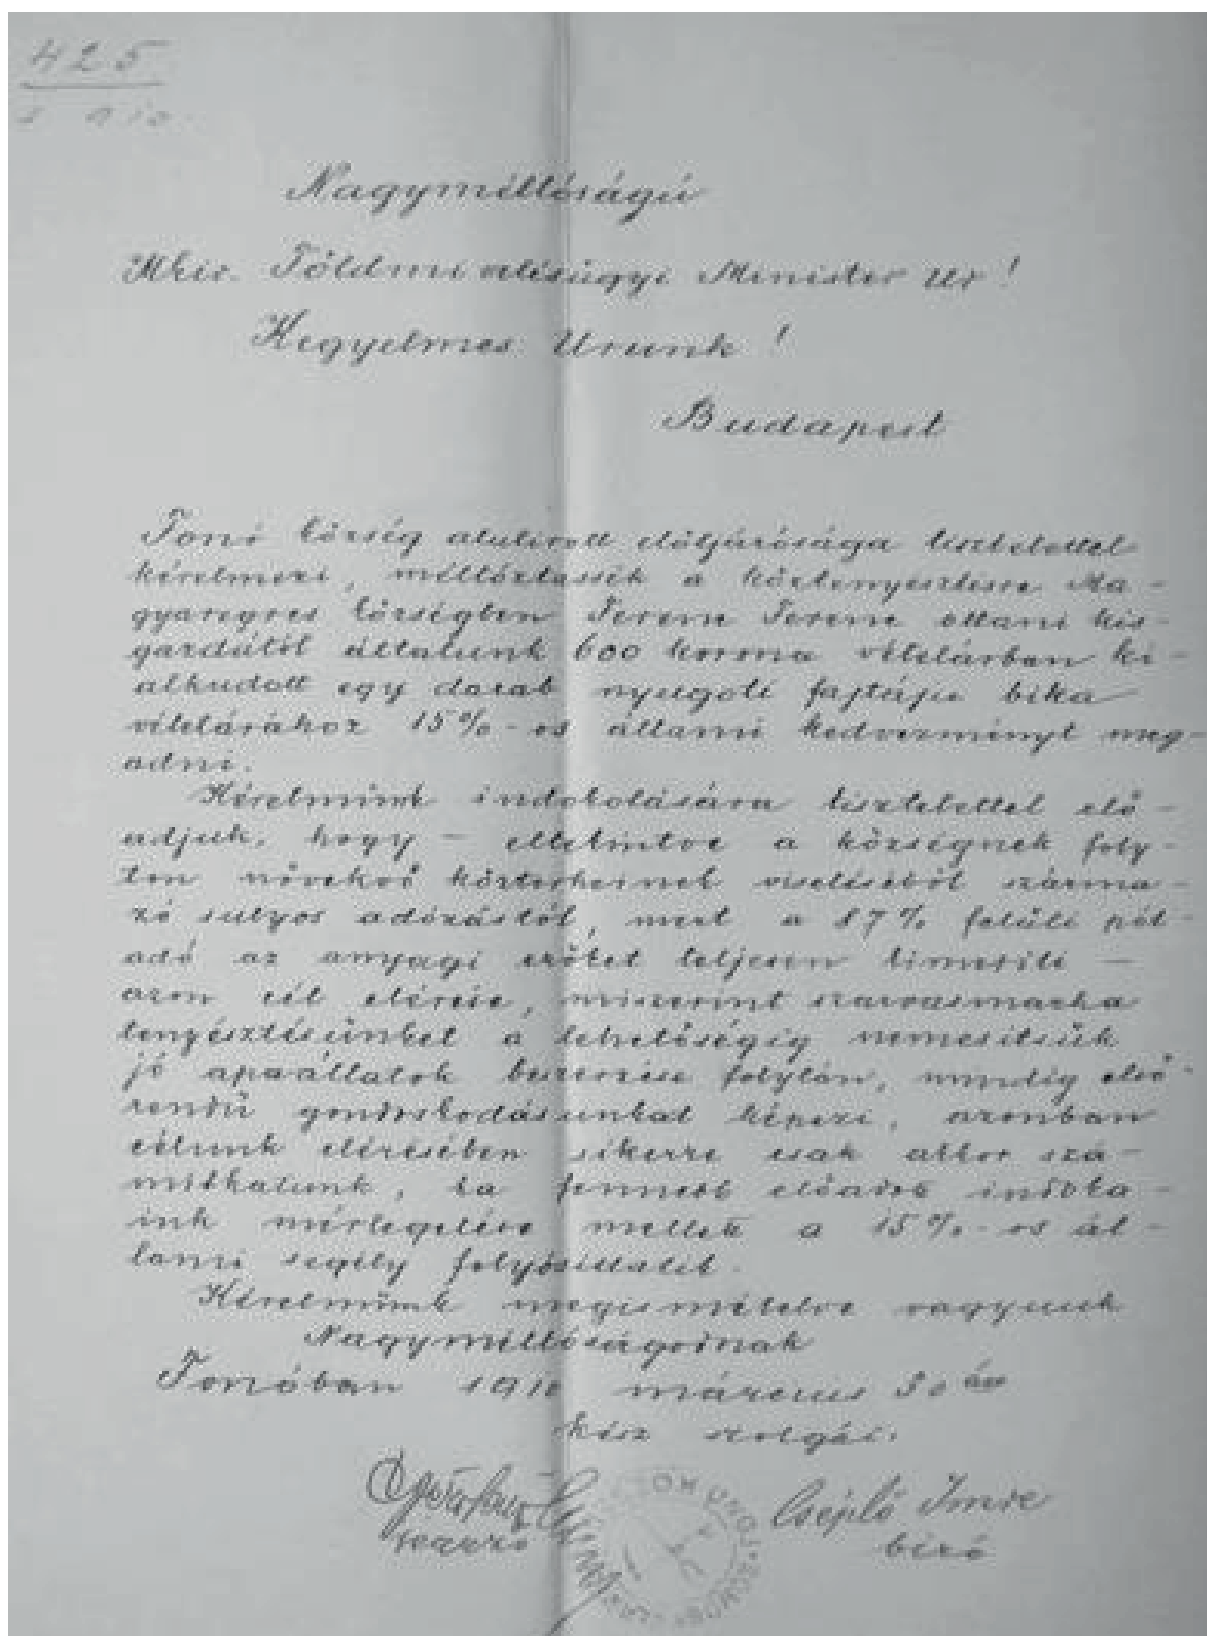 425
Nagyméltóságú
Mkir. Földmivelésügyi Minister Ur!
Kegyelmes Urunk!
Budapest
Fonó község alulirott elöljárósága tisztelettel
kérelmezi, méltóztassék a köztenyésztésre Ma-
gyaregres községben Ferenc Ferenc ottani kis-
gazdától általunk 600 korona vételárban ki-
alkudott egy darab nyugoti fajtáju bika
vételárához 15%-os állami kedvezményt meg-
adni.
Kérelmünk indokolására tisztelettel elő-
adjuk, hogy - eltekintve a községnek foly-
ton növekvő közterheinek viseléséből szárma-
zó sulyos adózástól, mert a 87% felüli pót-
adó az anyagi erőket teljesen kimeríti -
azon cél elérése, miszerint szarvasmarha
tenyésztésünket a lehetőségig nemesitsük
jó apaállatok beszerzése folytán, mindig első-
rendü gondoskodásunkat képezi, azonban
célunk elérésében sikerre csak akkor szá-
mithatunk, ha fennebb előadott indoka-
ink mérlegelése mellett a 15%-os ál-
lami segély folyósittatik.
Kérelmünk megismételve vagyunk
Nagyméltóságodnak
Fonóban 1910 március 30 án
kész szolgái:
Cséplő Imre
jegyző
biró